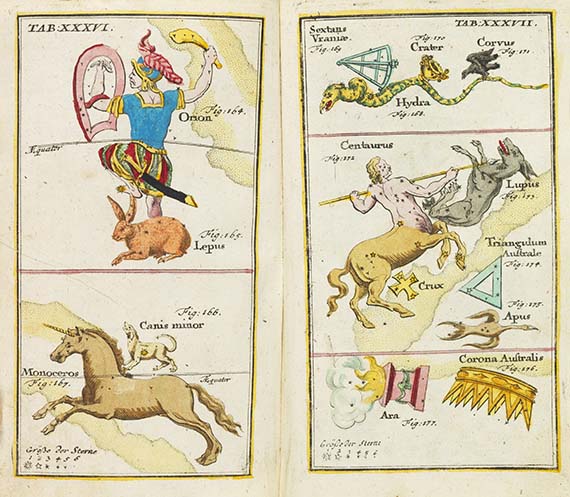 TAB:XXXVI.
Orion
Fig: 164.
Æquator
Fig: 165.
Lepus
Fig: 166.
Canis minor
Monoceros
Fig: 167.
Æquator
Größe der Sterne
1 2 3 4 5 6
TAB:XXXVII.
Sextans
Uraniæ.
Fig: 169.
Fig: 170
Crater
Corvus
Fig: 171.
Hydra
Fig: 168.
Centaurus
Fig: 172
Lupus
Fig: 173.
Triangulum
Australe
Fig: 174.
Crux
Fig: 175.
Apus
Corona Australis
Fig: 176.
Ara
Fig: 177.
Größe der Sterne
1 2 3 4 5 6